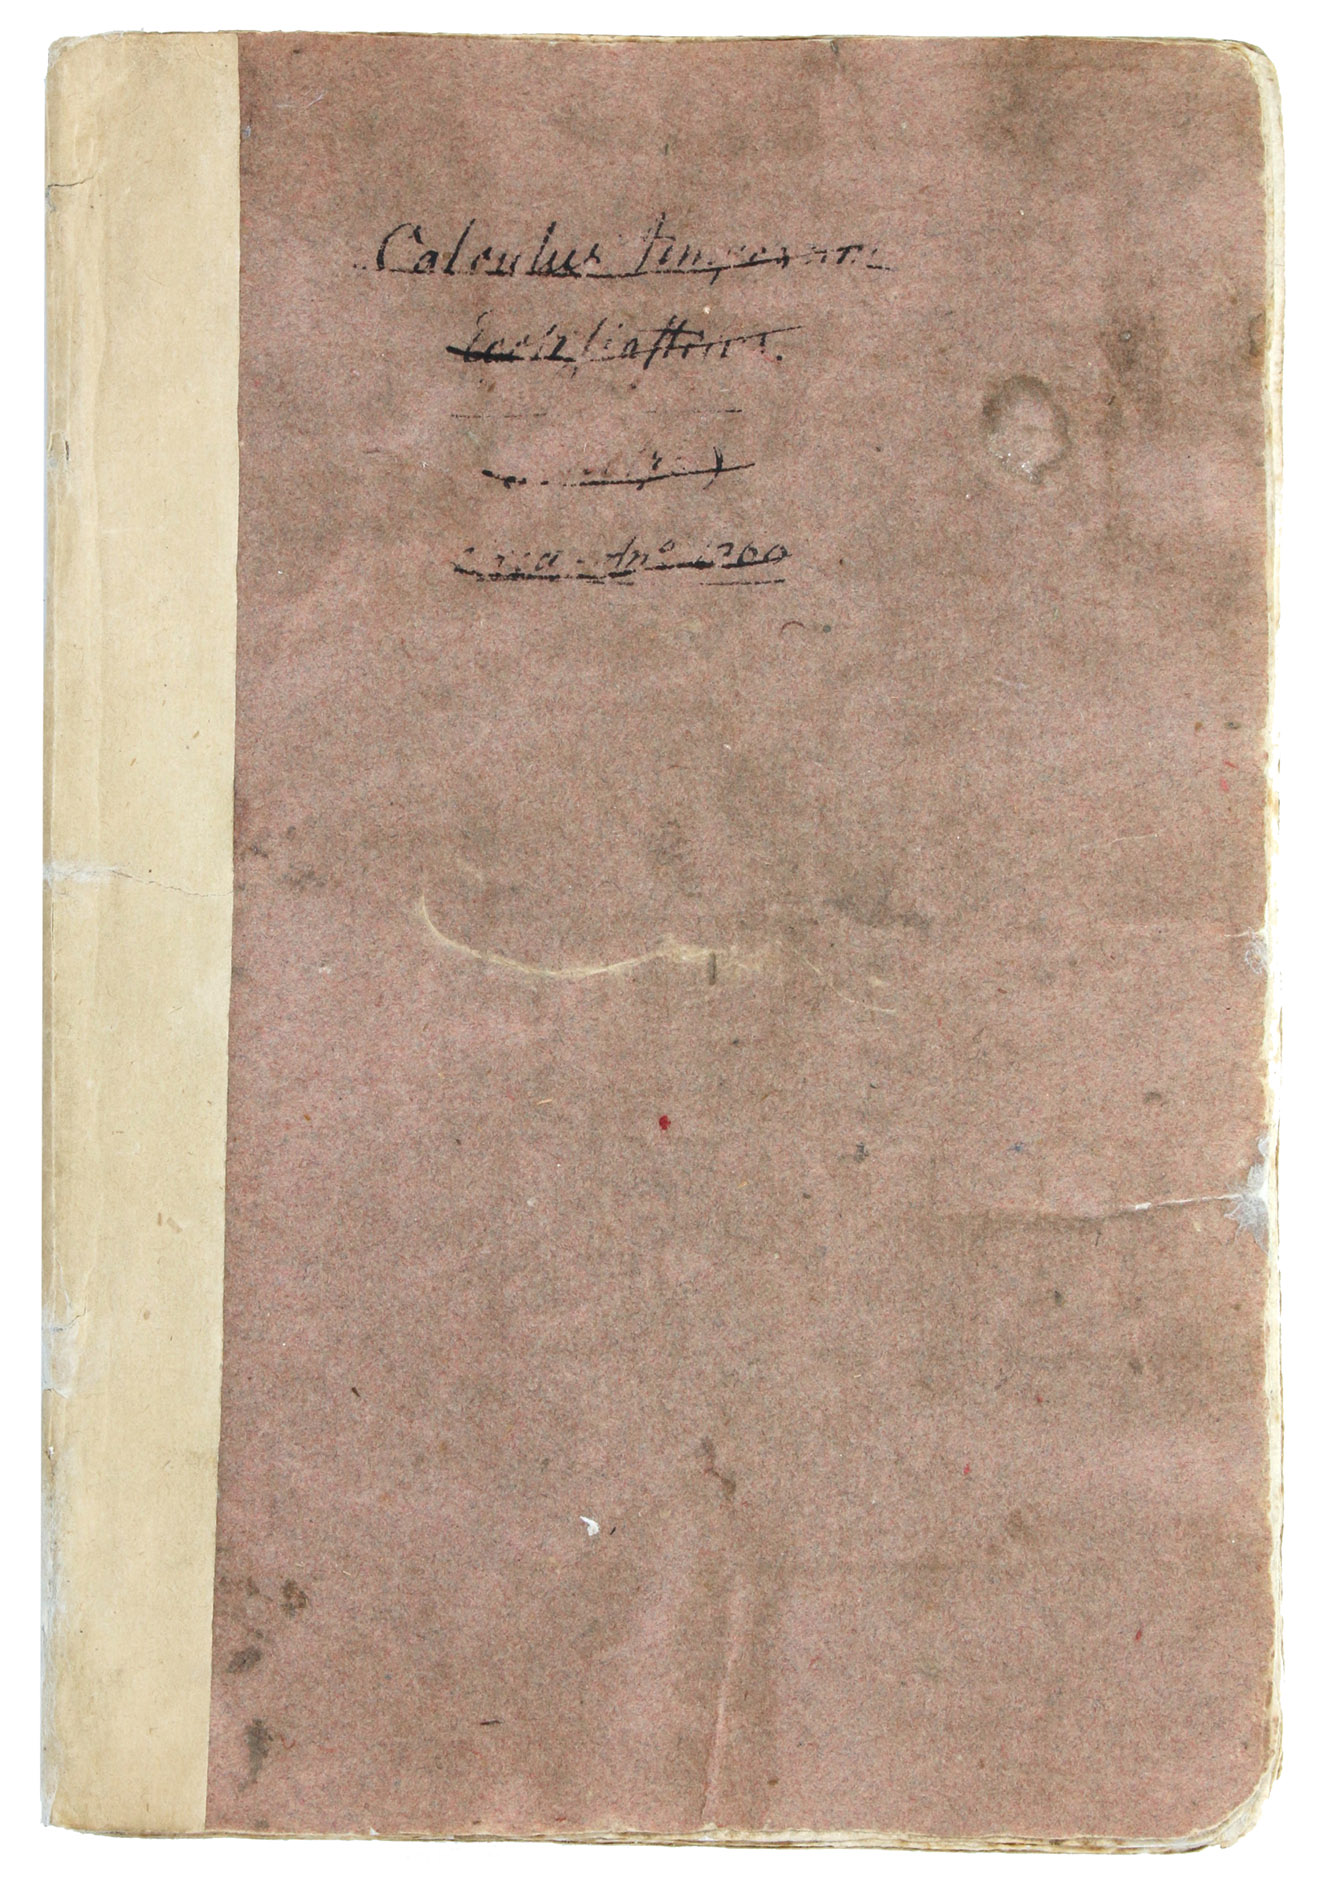 Calculus temporum
Ecclesiasticus.
circa Anº 1700